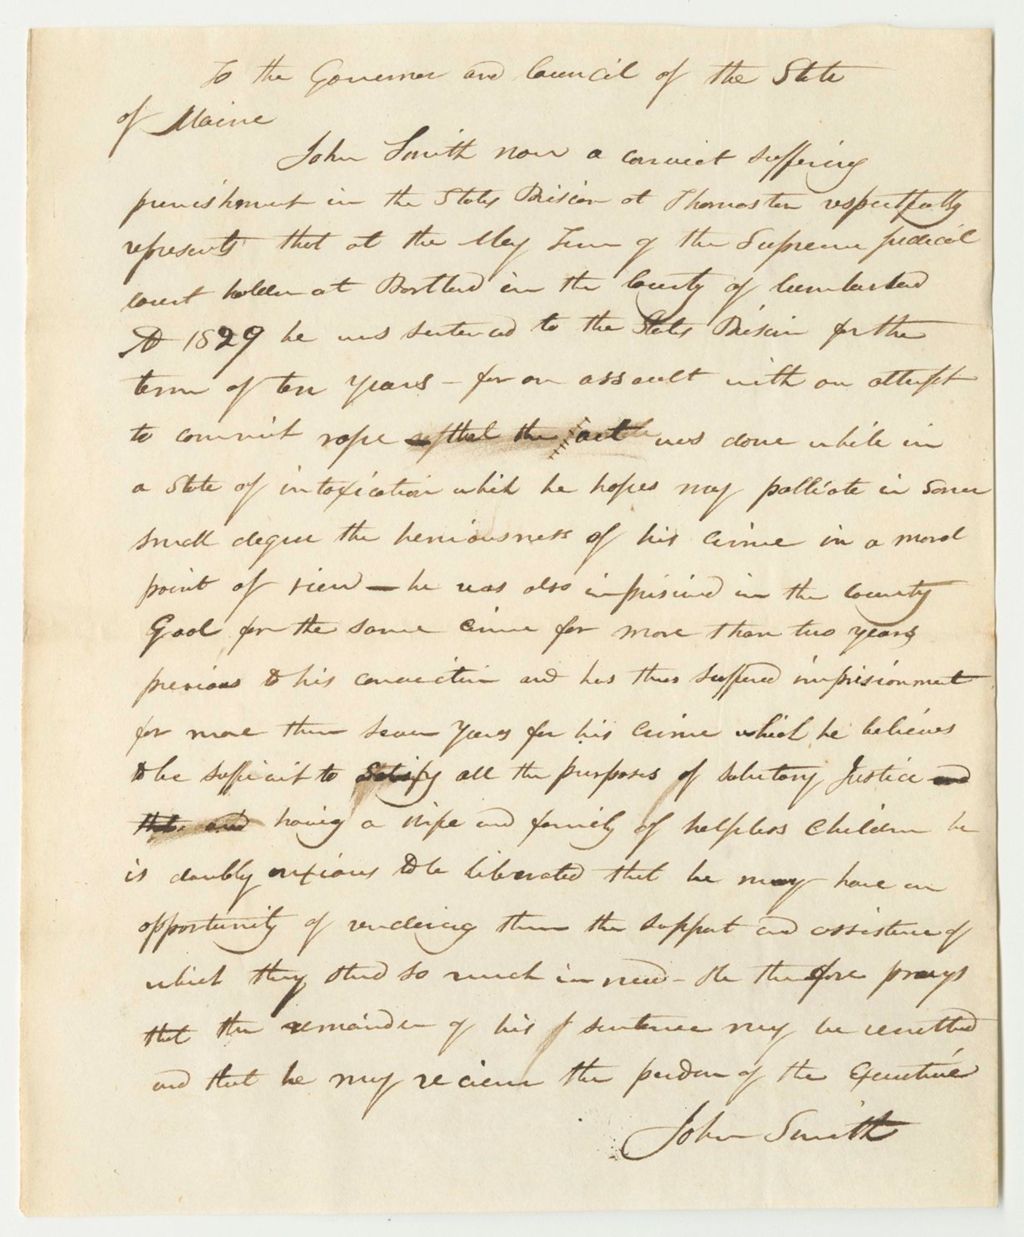 To the Governor and Council of the State
of Maine
John Smith now a convict suffering
punishment in the States Prison at Thomaston respectfully
represents that at the May Term of the Supreme Judicial
Court holden at Portland in the County of Cumberland
AD 1829 he was sentenced to the States Prison for the
term of ten years - for an assault with an attempt
to commit rape that the act was done while in
a State of intoxication which he hopes may palliate in some
small degree the heniousness of his crime in a moral
point of view — he was also imprisioned in the County
Gaol for the same crime for more than two years
previous to his conviction and has thus suffered imprisionment
for more than seven years for his crime which he believes
to be sufficient to satisfy all the purposes of salutory Justice and
having a wife and family of helpless children he
is doubly anxious to be liberated that he may have an
opportunity of rendering them the support and assistance of
which they stand so much in need - He therefore prays
that the remainder of his sentence may be remitted
and that he may recieve the pardon of the Executive
John Smith